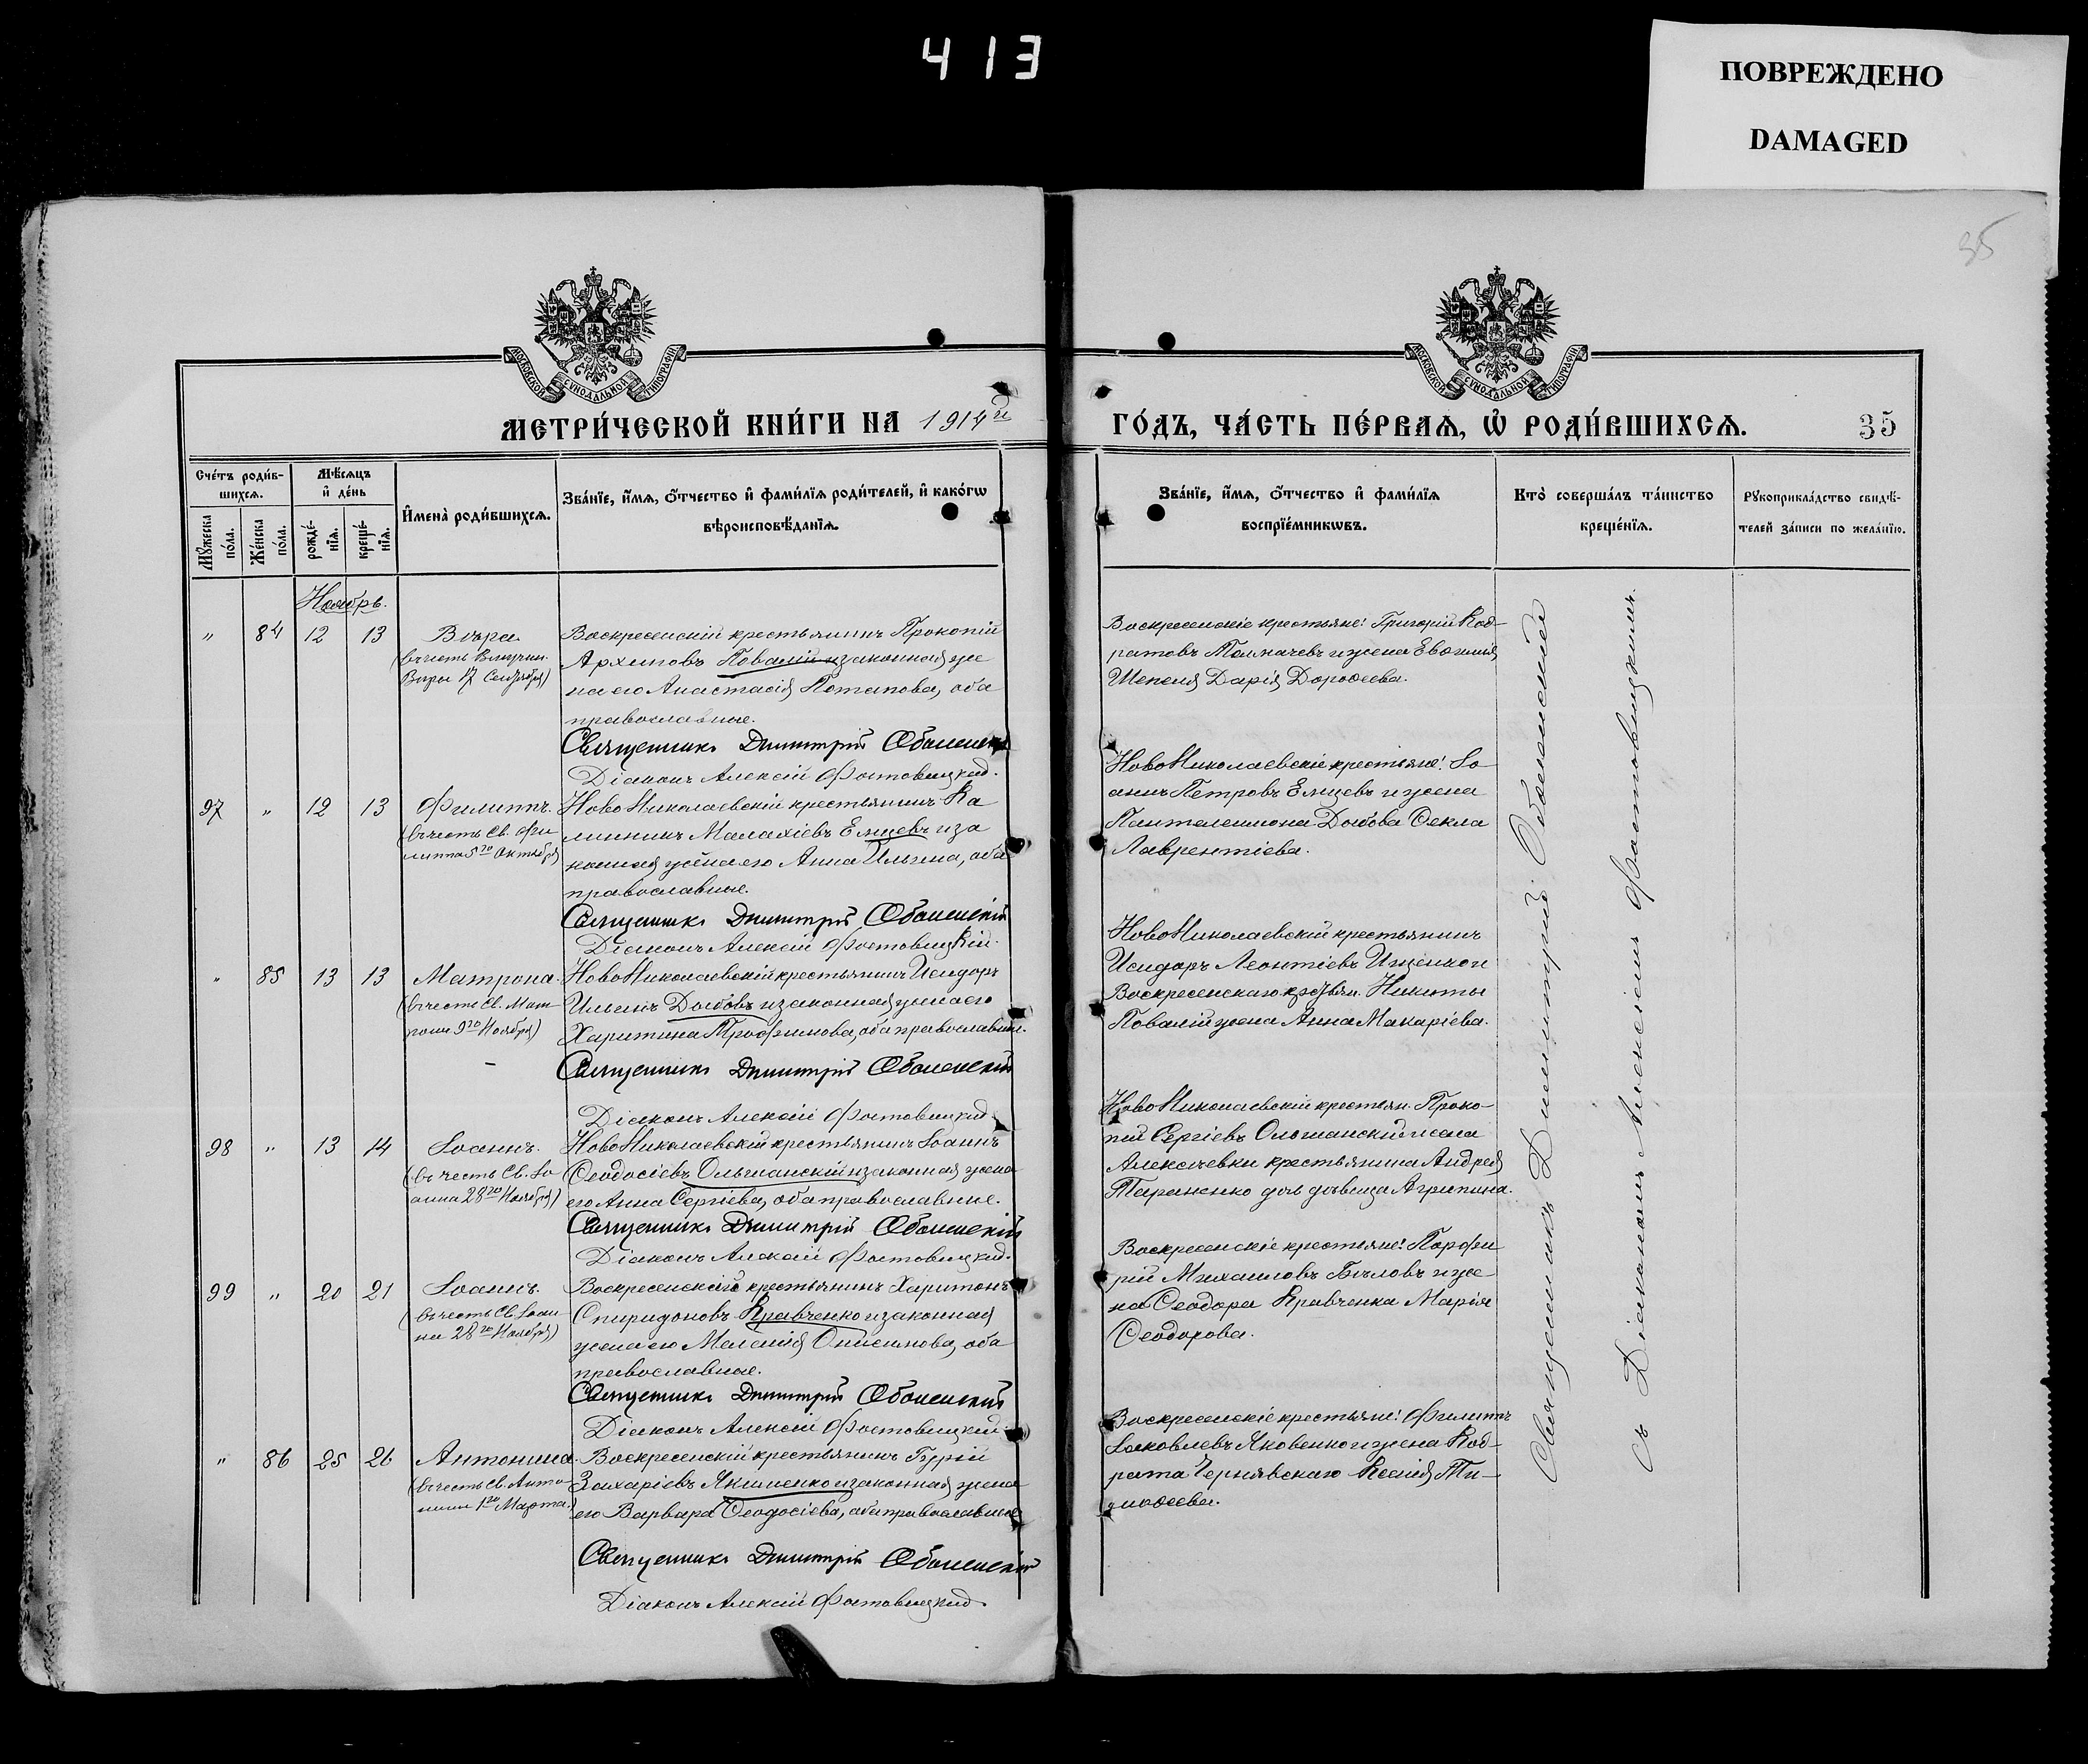 413
ПОВРЕЖДЕНО
DAMAGED
35
МОСКОВСКОЙ СѴНОДАЛЬНОЙ ТИПОГРАФІИ
МОСКОВСКОЙ СѴНОДАЛЬНОЙ ТИПОГРАФІИ
МЕТРИ́ЧЕСКОЙ КНИ́ГИ НА 1914й ГО́ДЪ, ЧА́СТЬ ПЕ́РВАѦ, Ѡ҆ РОДИ́ВШИХСѦ. 35
Сче́тъ роди́в-
шихсѧ.
Мꙋ́жеска по́ла.
Же́нска по́ла.
Мѣ́сѧцъ
и҆ де́нь
рожде́-
нїѧ.
креще́-
нїѧ.
И҆мена̀ роди́вшихсѧ.
Зва́нїе, и҆́мѧ, ѻ҆́тчество и҆ фами́лїѧ роди́телей, и҆ како́гѡ
вѣроисповѣ́данїѧ.
Зва́нїе, и҆́мѧ, ѻ҆́тчество и҆ фами́лїѧ
воспрїе́мникѡвъ.
Кто̀ соверша́лъ та́инство
креще́нїѧ.
Рꙋкоприкла́дство свидѣ́-
телей за́писи по жела́нїю.
Ноябрь.
" 84 12 13 Вѣра
(въ честь Вмучен.
Вѣры 17 Сентября)
Воскресенскій крестьянинъ Прокопій
Архиповъ Повалій и законная же
на его Анастасія Потапова, оба
православные.
Священникъ Димитрій Оболенскій
Діаконъ Алексій Фостовицкій.
Воскресенскіе крестьяне: Григорій Код-
ратовъ Толмачевъ и жена Евфимія
Шепеля Дарія Дороѳеева.
97 " 12 13 Филиппъ.
(въ честь Св. Фи
липпа 5го Октября)
НовоНиколаевскій крестьянинъ Ка
линникъ Малахіевъ Елцевъ и за
конная жена его Анна Ильина, оба
православные.
Священникъ Димитрій Оболенскій
Діаконъ Алексій Фостовицкій.
НовоНиколаевскіе крестьяне: Іо
аннъ Петровъ Елцевъ и жена
Пантелеимона Дыбова Ѳекла
Лаврентіева.
" 85 13 13 Матрона.
(въ честь Св. Мат
роны 9го Ноября)
НовоНиколаевскій крестьянинъ Исидоръ
Ильинъ Дыбовъ и законная жена его
Харитина Трофимова, оба православные.
Священникъ Димитрій Оболенскій
Діаконъ Алексій Фостовицкій
НовоНиколаевскій крестьянинъ
Исидоръ Леонтіевъ Ищенко и
Воскресенскаго крестьян. Никиты
Повалій жена Анна Макаріева.
98 " 13 14 Іоаннъ.
(въ честь Св. Іо
анна 28го Ноября)
НовоНиколаевскій крестьянинъ Іоаннъ
Ѳеодосіевъ Ольшанскій и законная жена
его Анна Сергіева, оба православные.
Священникъ Димитрій Оболенскій
Діаконъ Алексій Фостовицкій.
НовоНиколаевскій крестьян. Проко-
пій Сергіевъ Ольшанскій и села
Алексѣевки крестьянина Андрея
Тараненко дочь дѣвица Агрипина.
99 " 20 21 Іоаннъ.
(въ честь Св. Іоан
на 28го Ноября)
Воскресенскій крестьянинъ Харитонъ
Спиридоновъ Кравченко и законная
жена его Меланія Онисимова, оба
православные.
Священникъ Димитрій Оболенскій
Діаконъ Алексій Фостовицкій
Воскресенскіе крестьяне: Порфи
рій Михаиловъ Бѣловъ и же-
на Ѳеодора Кравченка Марія
Ѳеодорова.
" 86 25 26 Антонина.
(въ честь Св. Анто
нины 1го Марта.)
Воскресенскій крестьянинъ Гурій
Захаріевъ Якименко и законная жена
его Варвара Ѳеодосіева, оба православные
Священникъ Димитрій Оболенскій
Діаконъ Алексій Фостовицкій
Воскресенскіе крестьяне: Филиппъ
Іаковлевъ Яковенко и жена Код-
рата Чернявскаго Ксенія Ти-
моѳеева.
Священникъ Димитрій Оболенскій
съ Діакономъ Алексіемъ Фостовицкимъ.